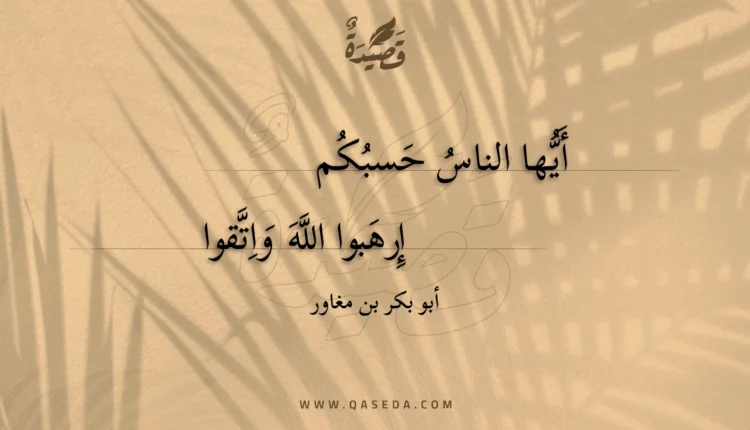 قَصِيْدَةٌ
أَيُّها الناسُ حَسبُكُم
إِرهَبوا اللَّهَ وَاِتَّقوا
أبو بكر بن مغاور
WWW.QASEDA.COM